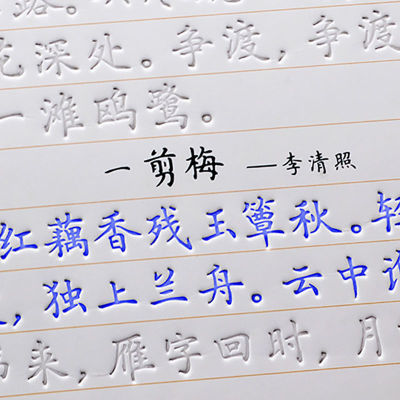 花深处。争渡，争渡
一滩鸥鹭。
一剪梅 —李清照
红藕香残玉簟秋。轻
，独上兰舟。云中谁
来，雁字回时，月